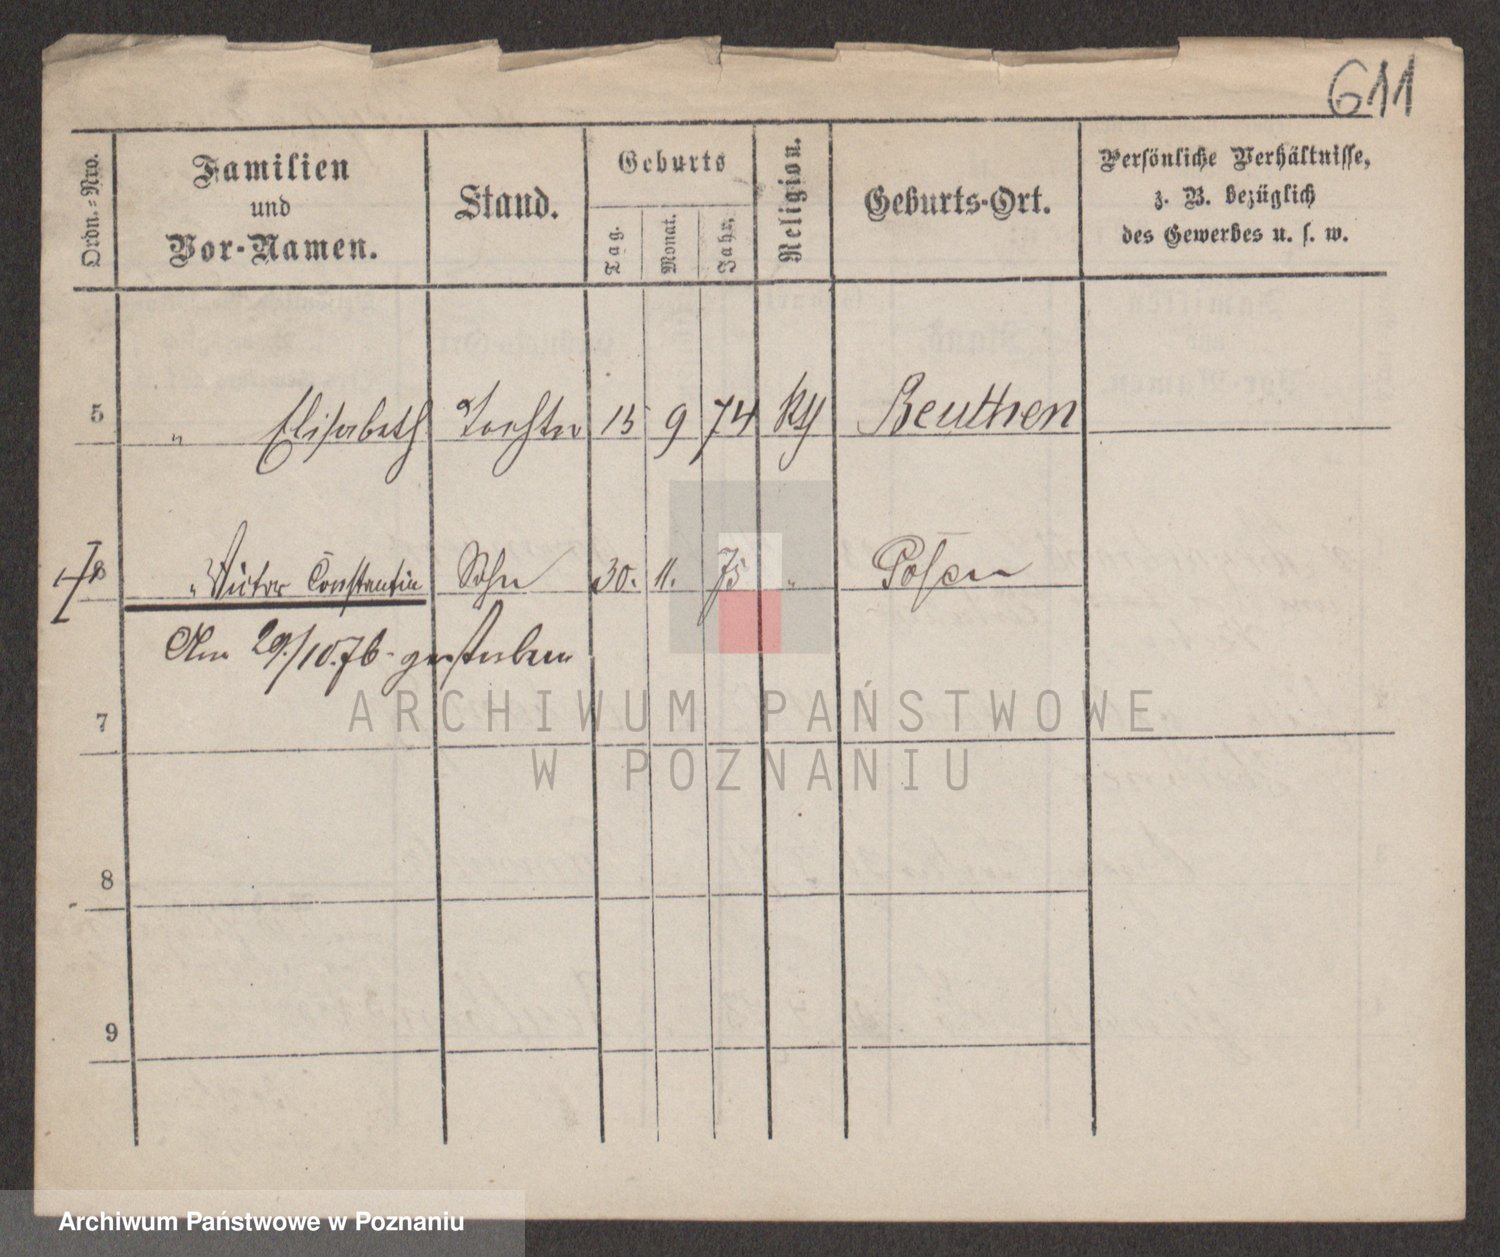 611
Ordn.-Nro.
Familien
und
Vor-Namen.
Stand.
Geburts
Tag.
Monat.
Jahr.
Religion.
Geburts-Ort.
Persönliche Verhältnisse,
z. B. bezüglich
des Gewerbes u. s. w.
5 " Elisabeth Tochter 15 9 74 Beuthen
6 " Victor Constantin Sohn 30. 11. 75 " Posen
Am 29./10.76. gestorben
7
8
9
ARCHIWUM PAŃSTWOWE
W POZNANIU
Archiwum Państwowe w Poznaniu